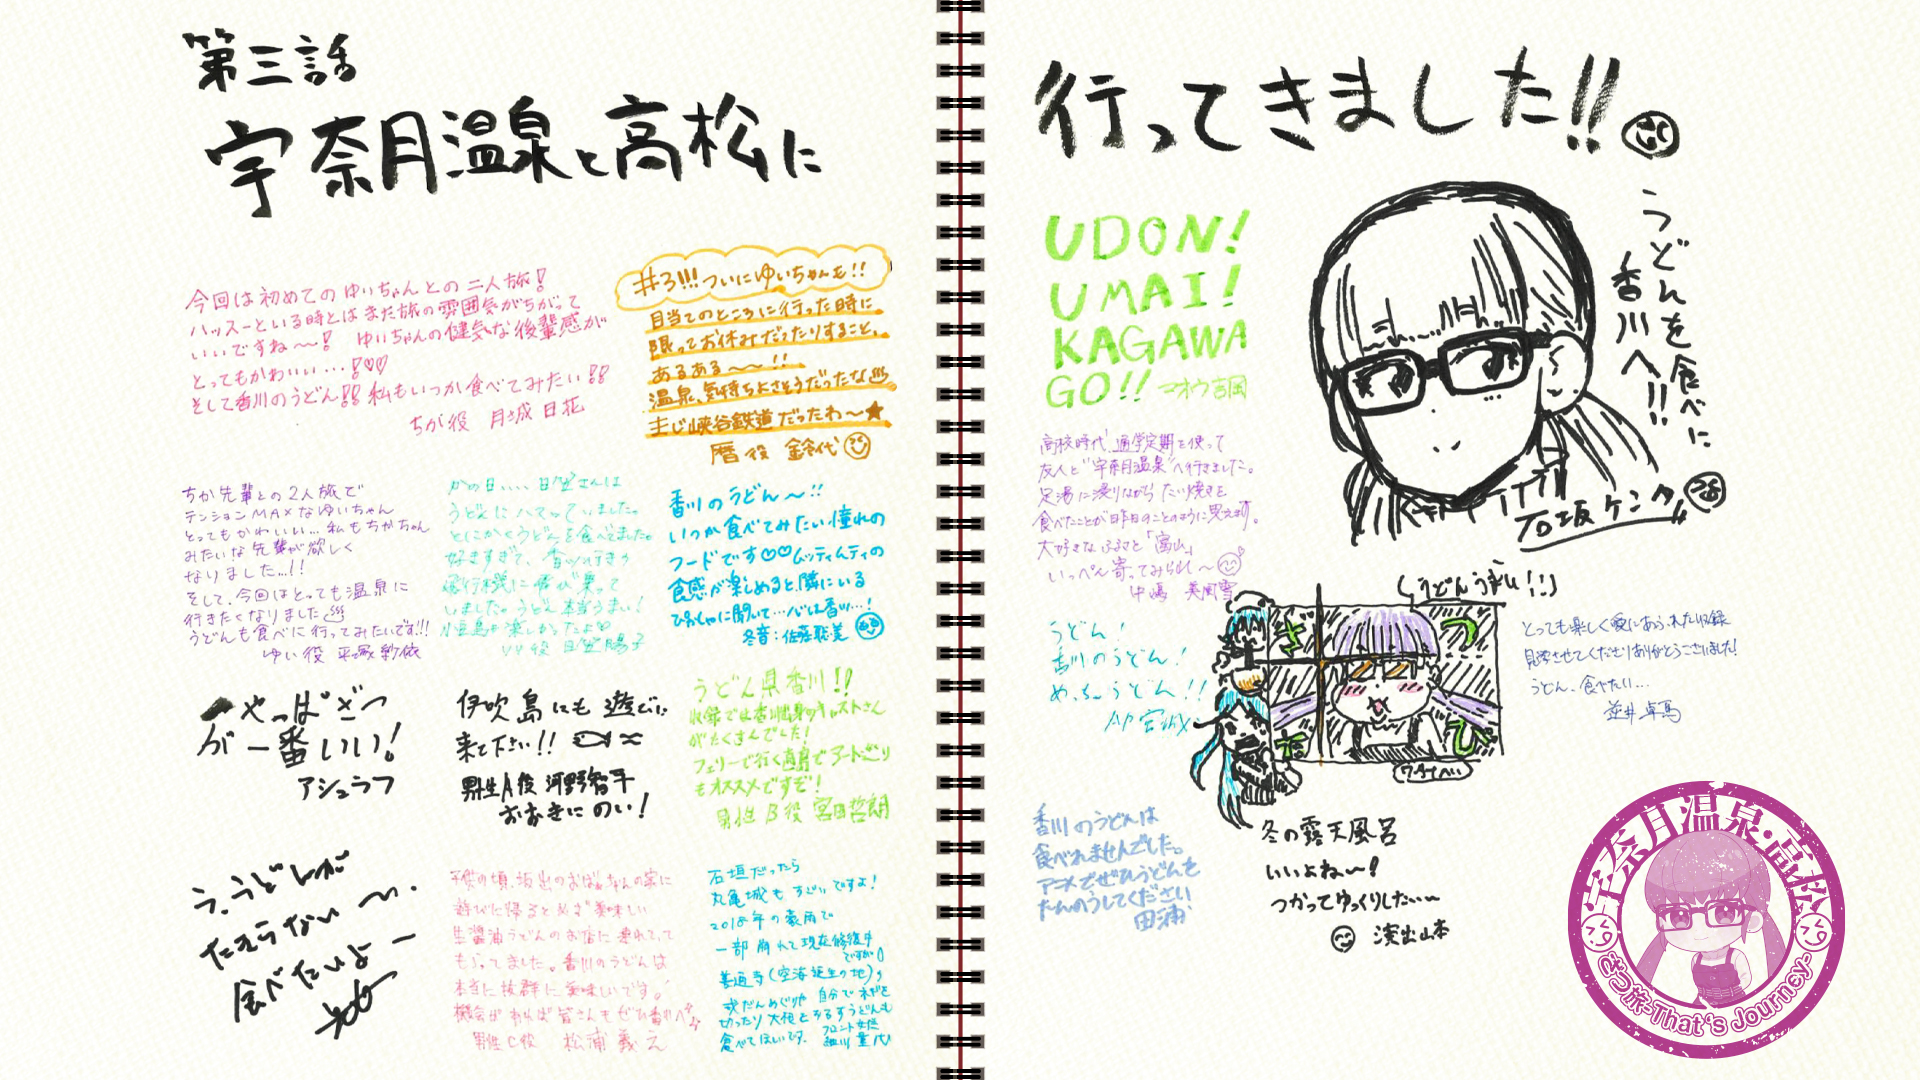 第三話
宇奈月温泉と高松に
行ってきました!!
今回は初めてのゆいちゃんとの二人旅!
ハッスーといる時とはまた旅の雰囲気がちがって
いいですね〜! ゆいちゃんの健気な後輩感が
とってもかわいい…!♡♡
そして香川のうどん!! 私もいつか食べてみたい!!
ちか役 月城日花
#3!!! ついにゆいちゃんも!!
目当てのところに行った時に
限ってお休みだったりすること、
あるある〜〜!!
温泉、気持ちよさそうだったな♨
まじ峡谷鉄道だったわ〜★
暦役 鈴代
ちか先輩との2人旅で
テンションMAXなゆいちゃん
とってもかわいい…私もちかちゃん
みたいな先輩が欲しく
なりました…!!
そして、今回はとっても温泉に
行きたくなりました♨
うどんも食べに行ってみたいです!!!
ゆい役 平塚紗依
かの日、、、、日笠さんは
うどんにハマっていました。
とにかくうどんを食べてました。
好きすぎて、香川行きの
飛行機に飛び乗って
いました。うどん本当うまい!
小豆島が楽しかったよ♡
役 日笠陽子
香川のうどん〜!!
いつか食べてみたい憧れの
フードです♡♡ムッティムティの
食感が楽しめると隣にいる
ぴおしゃに聞いて…いざ香川…!
冬音:佐藤聡美
やっぱざつ
が一番いい!
アシュラフ
伊吹島にも遊びに
来て下さい!!
男性A役 河野智平
おおきにのい!
うどん県香川!!
収録では香川出身のキャストさん
がたくさんでした!
フェリーで行く直島でアート巡り
もオススメですぞ!
男性B役 宮田哲朗
う、うどんが
たまらない〜.
食べたいよー
子供の頃、坂出のおばあちゃんの家に
遊びに帰ると必ず美味しい
生醤油うどんのお店に連れてって
もらってました。香川のうどんは
本当に抜群に美味しいです!
機会があれば皆さんもぜひ香川へ♪
男性C役 松浦義之
石垣だったら
丸亀城もすごいですよ!
2018年の豪雨で
一部崩れて現在修復中
ですが
善通寺(空海誕生の地)の
戒だんめぐりや自分でネギを
切ったり大根とするすうどんも
食べてほしいです。
フロント女性
細川
UDON!
UMAI!
KAGAWA
GO!! マオウ吉岡
うどんを食べに
香川へ!!
石坂ケンタ
高校時代、通学定期を使って
友人と"宇奈月温泉"へ行きました。
足湯に浸りながら たい焼きを
食べたことが昨日のことのように思えます。
大好きなふるさと「富山」
いっぺん寄ってみられ〜
中嶋 美岡雪
うどん!
香川のうどん!
めっちゃうどん!!
AP 宮城
うどんうまい!!
ざ
つ
た
び
とっても楽しく愛にあふれた収録
見学させてくださりありがとうございました!
うどん、食べたい…
並井卓馬
香川のうどんは
食べれませんでした。
アニメでぜひうどんを
たんのうしてください
田浦
冬の露天風呂
いいよね〜!
つかってゆっくりしたい〜
演出山本
宇奈月温泉・高松
ざつ旅-That's Journey-